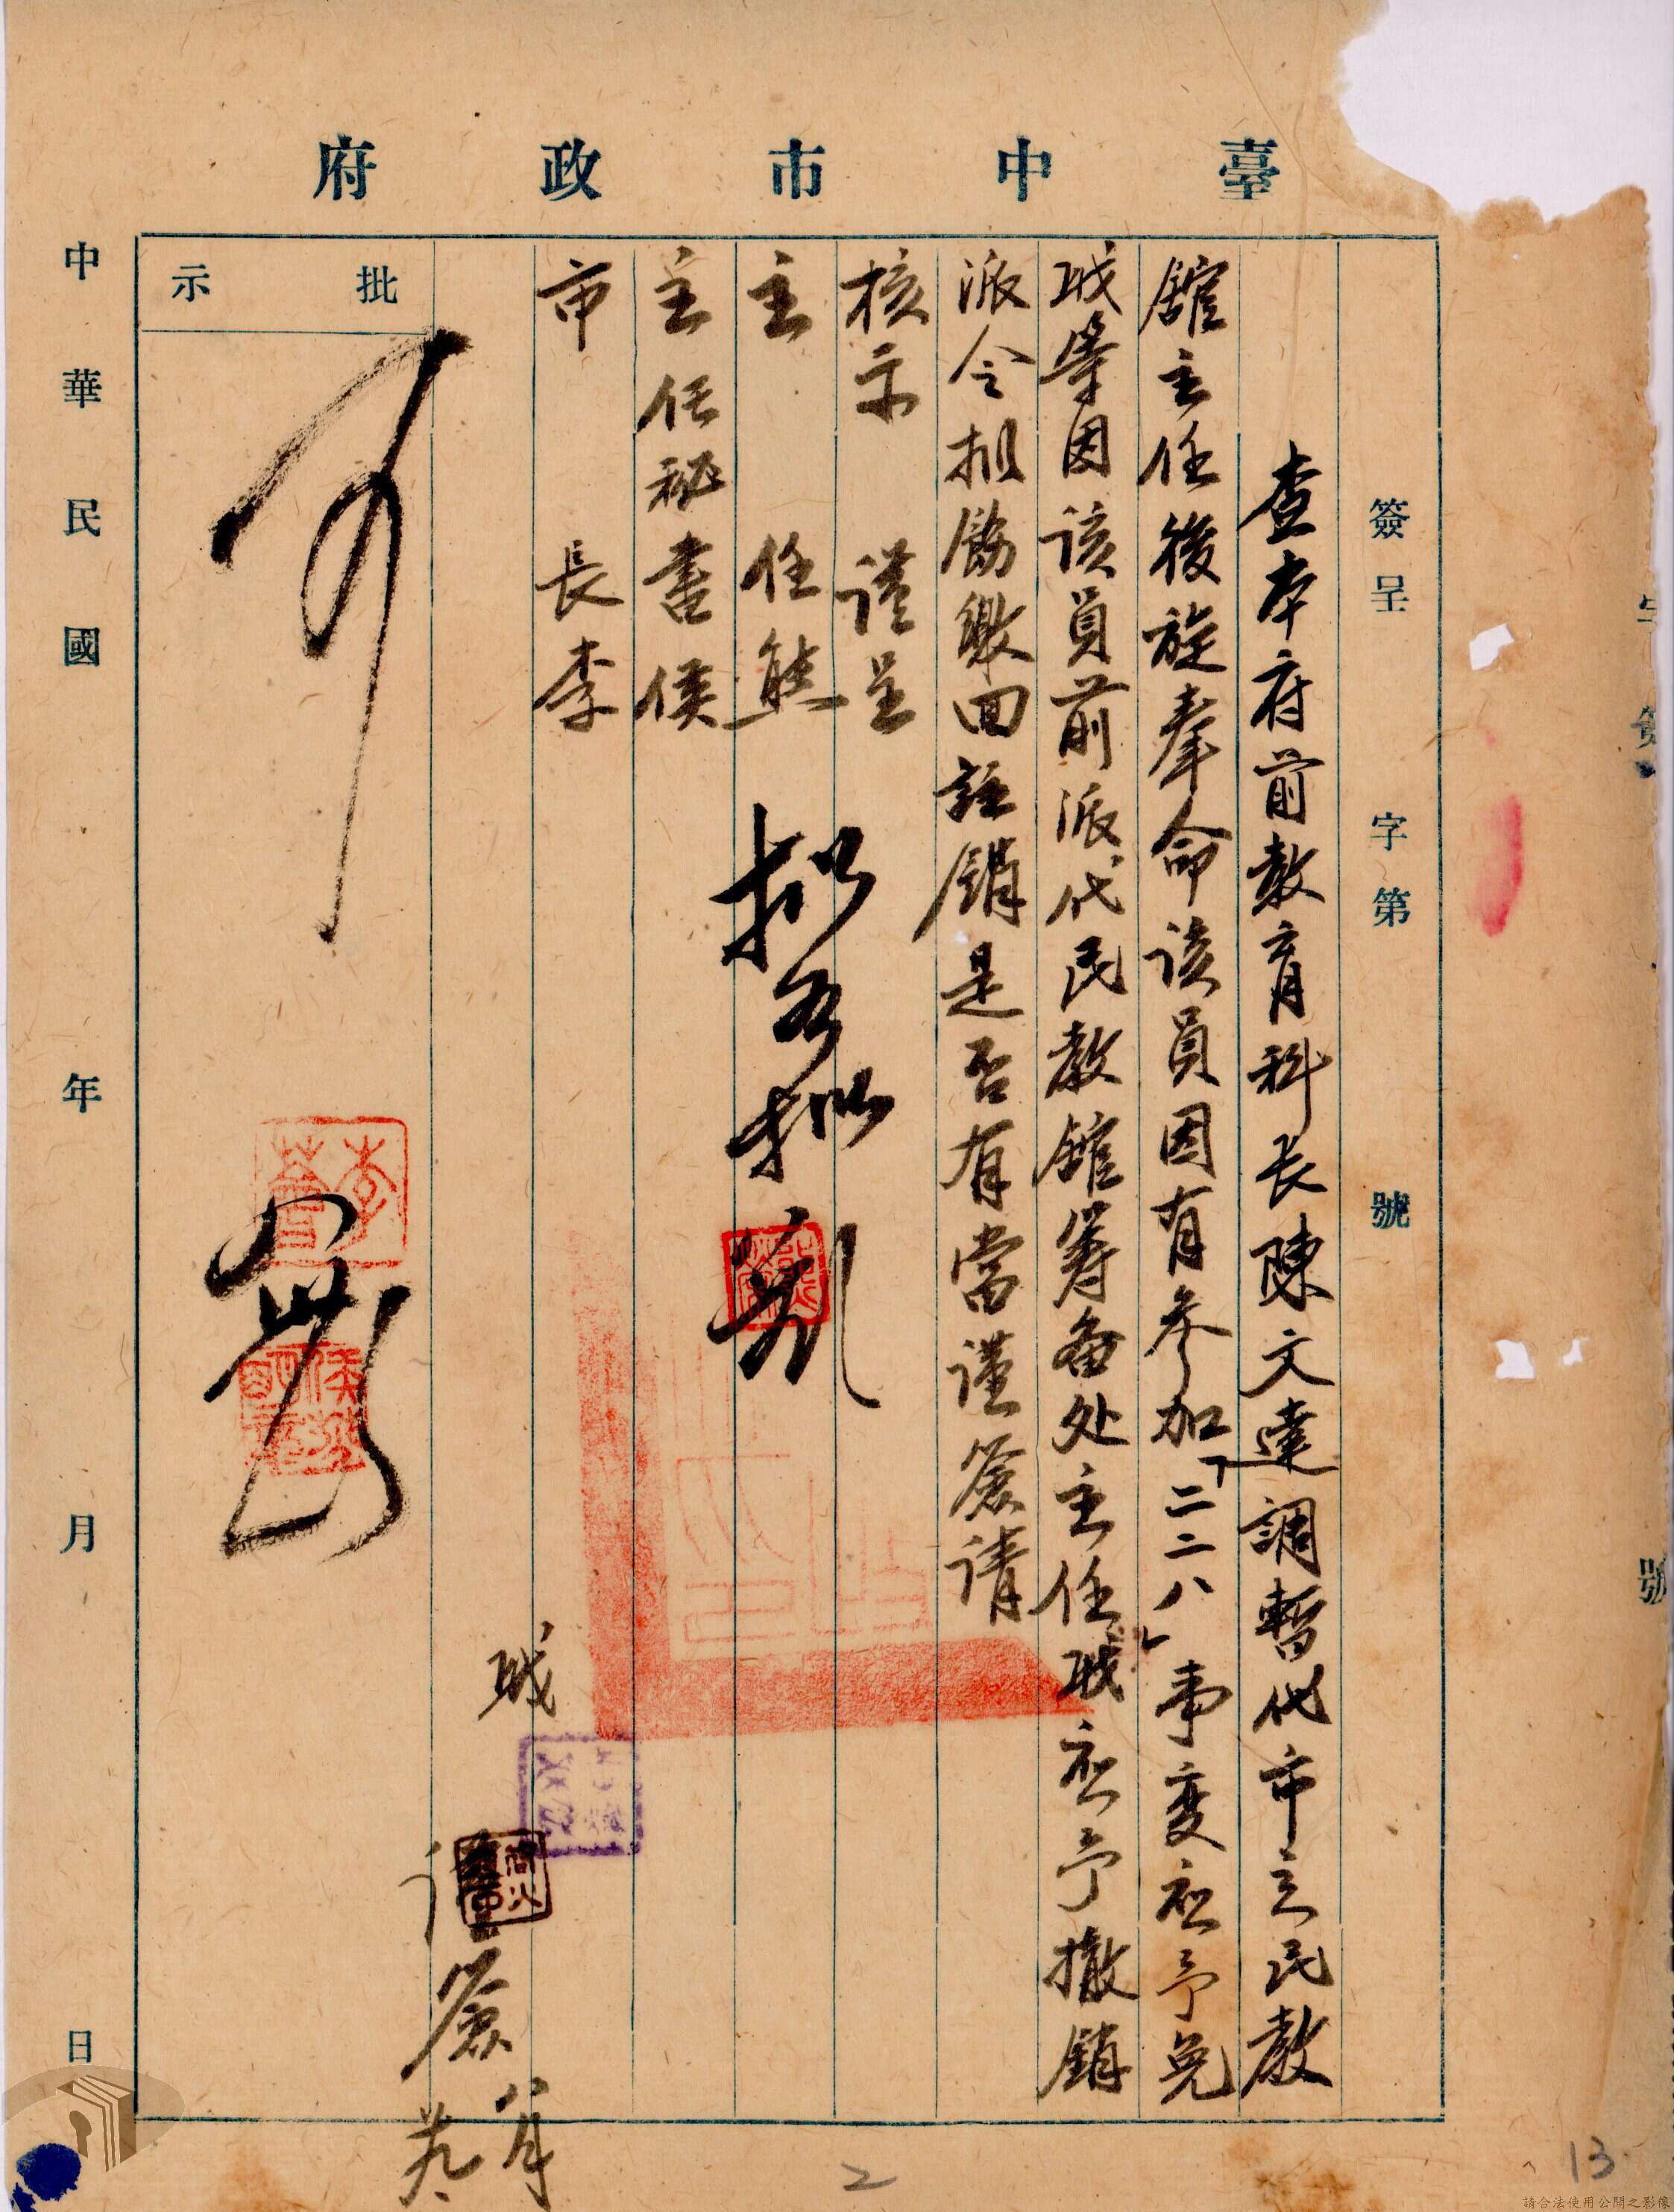 臺中市政府
簽呈 字第 號
查本府前教育科長陳文達調暫代市立民教
館主任後旋奉命該員因有參加「二二八」事变應予免
职等因该員前派代民教館筹备处主任职應予撤銷
派令拟飭繳回註銷是否有當謹簽请
核示 謹呈
主任熊
主任秘書侯
市長李
拟如拟
职
謹簽
八月
批示
可
中華民國 年 月 日
2
13
請合法使用公開之影像